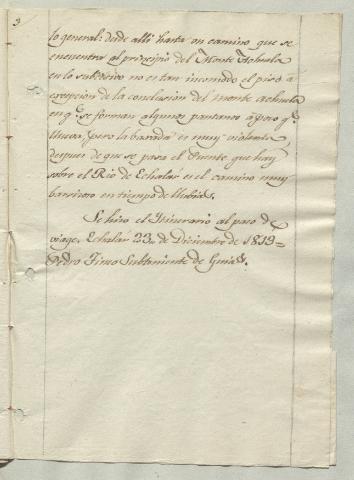 3
lo general: desde alli hasta un camino que se
encuentra al principio del Monte Achuela
en lo subcesivo no es tan incomodo el piso á
excepcion de la conclusion del monte achuela
en q.e se forman algunos pantanos á poco q.e
llueva, pero la baxada es muy violenta,
despues de que se pasa el Puente que hay
sobre el Rio de Echalar es el camino muy
barrioso en tiempo de llubias.
Se hizo el Itinerario al paso de
viage. Echalar 23,, de Diciembre de 1813=
Pedro Subteniente de Guias.